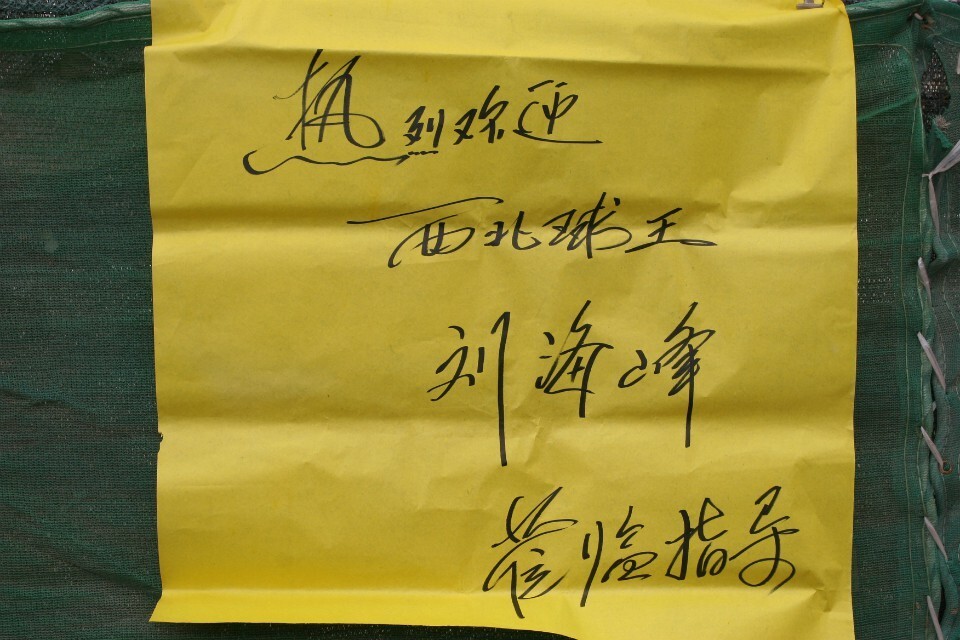 热烈欢迎
西北球王
刘海峰
莅临指导